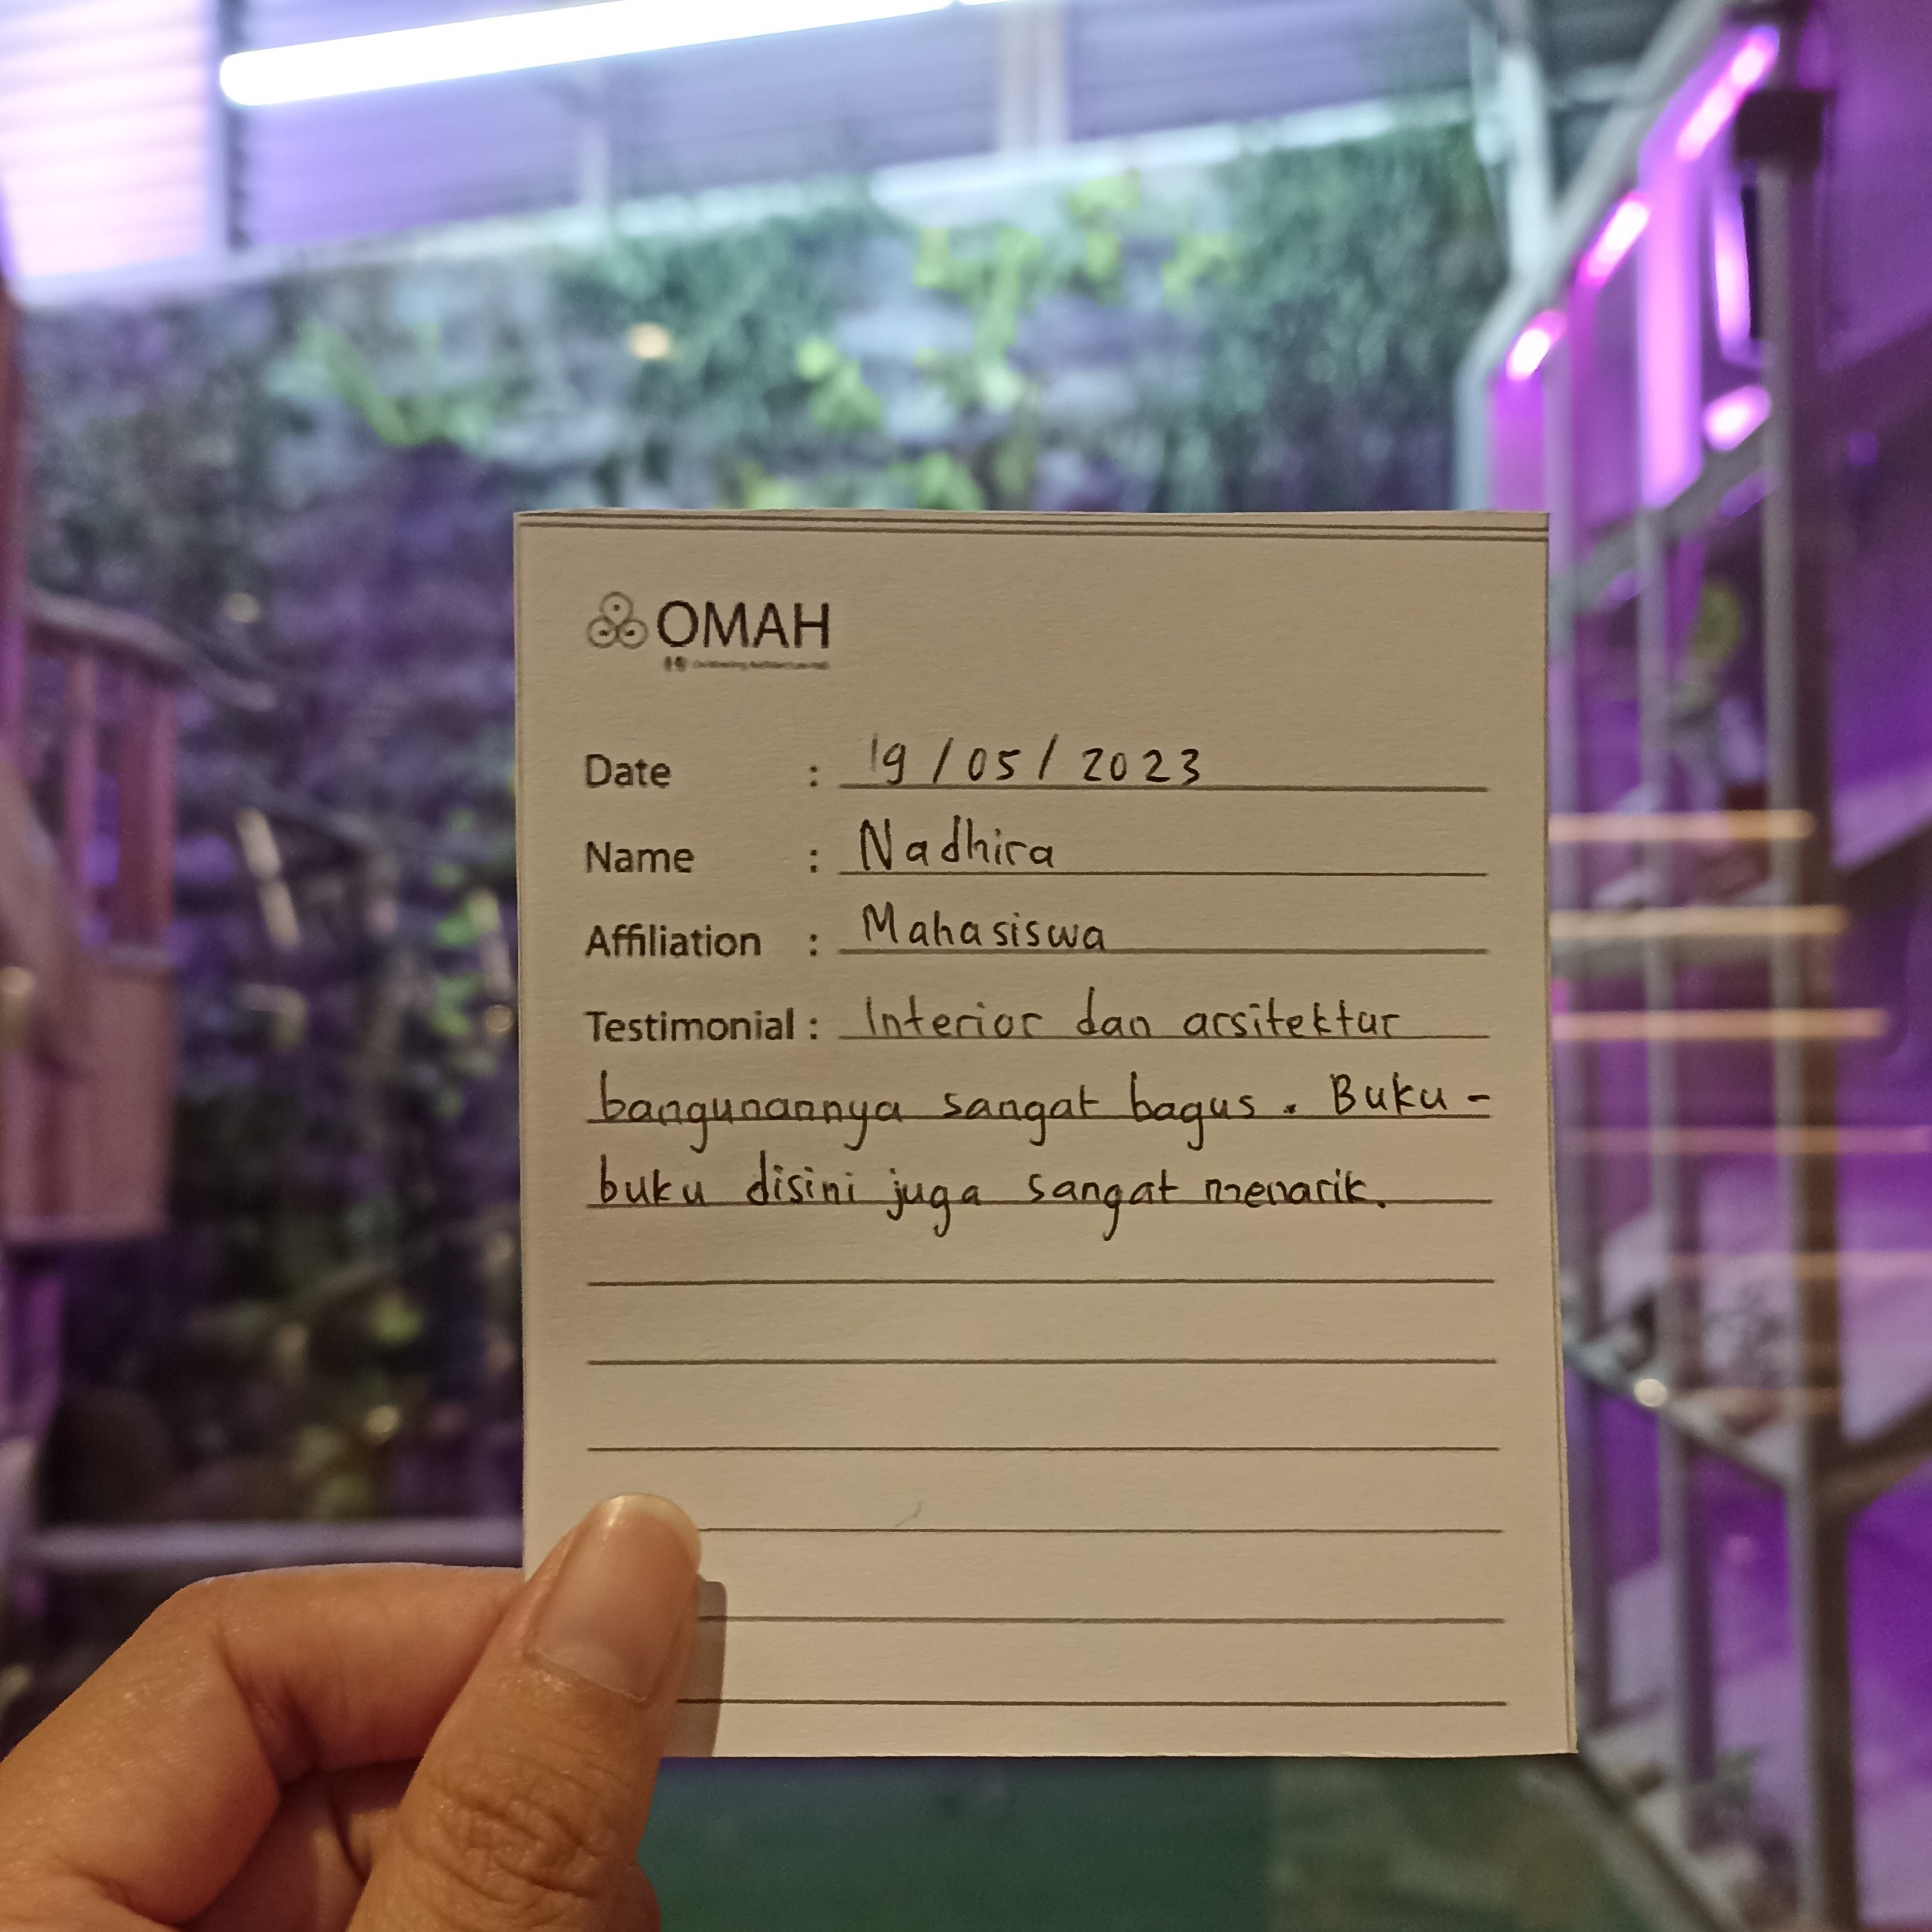 OMAH
Date : 19/05/2023
Name : Nadhira
Affiliation : Mahasiswa
Testimonial : Interior dan arsitektur
bangunannya sangat bagus. Buku-
buku disini juga sangat menarik.